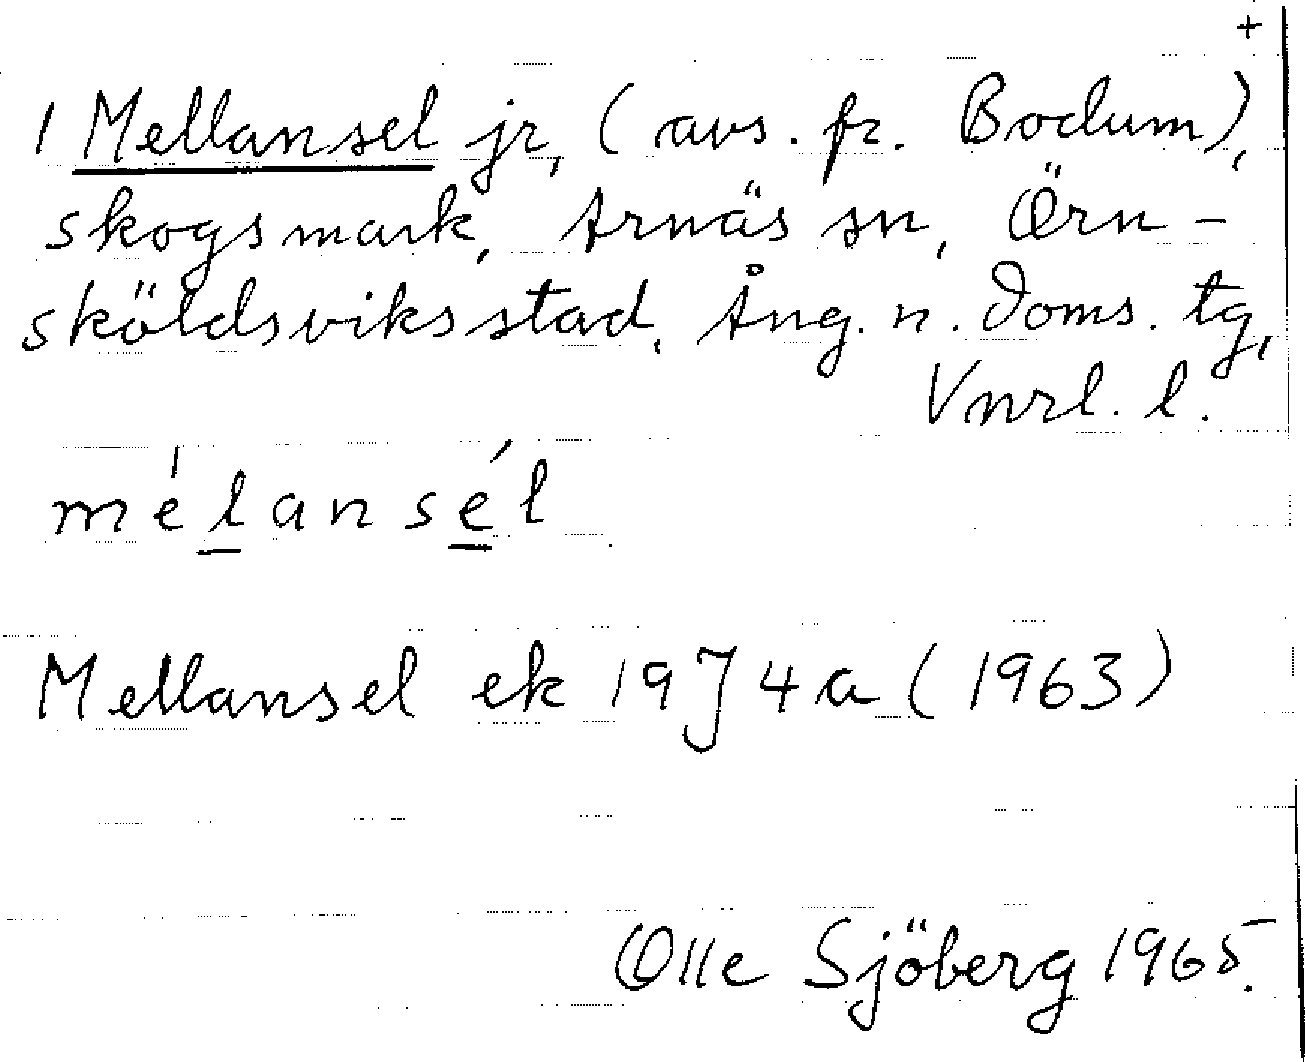 +
1 Mellansel jr, (avs. fr. Bodum),
skogsmark, Arnäs sn, Örn-
sköldsviksstad, Ång. n. doms. tg,
Vnrl. l.
mélansél
Mellansel ek 19J4a (1963)
Olle Sjöberg 1965.